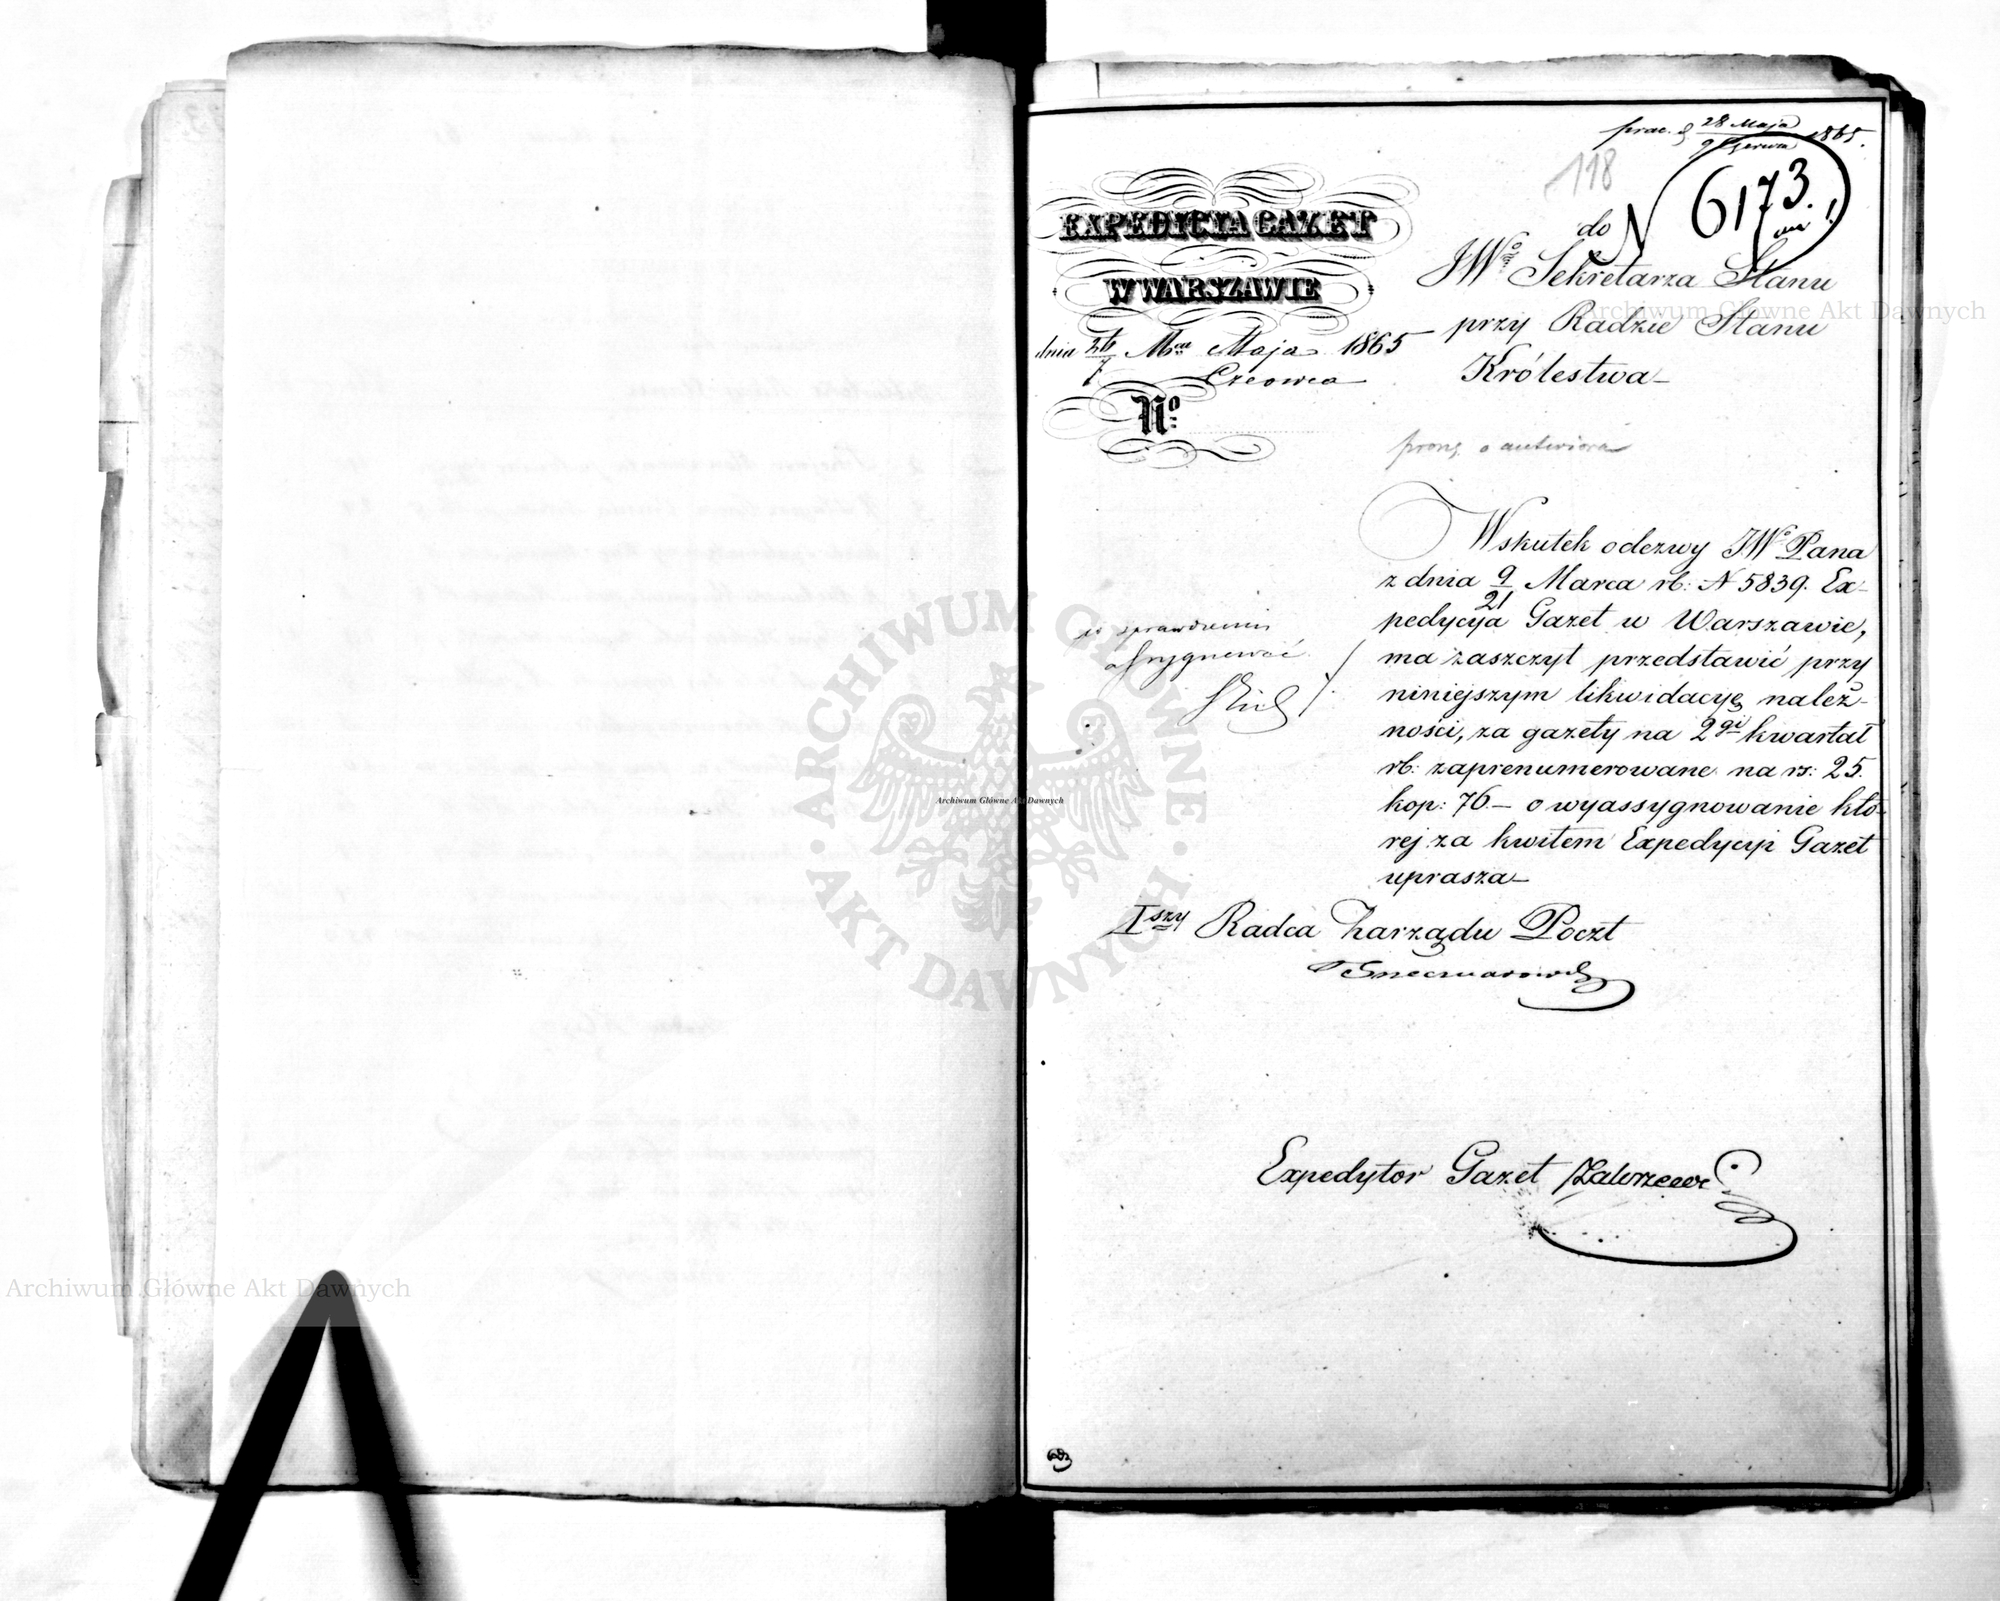 28 Maja
9 Czerwca 1865.
118
N 6173.
EXPEDYCYA GAZET
W WARSZAWIE
dnia 26/7 Mca Maja 1865
Czerwca
No
do
JWo Sekretarza Stanu
przy Radzie Stanu
Królestwa
Wskutek odezwy JWo Pana
z dnia 9/21 Marca rb: N 5839. Ex-
pedycya Gazet w Warszawie,
ma zaszczyt przedstawić przy
niniejszym likwidacyę należ-
ności, za gazety na 2gi kwartał
rb: zaprenumerowane na rs: 25.
kop: 76 – o wyassygnowanie któ-
rej za kwitem Expedycyi Gazet
uprasza
po sprawdzeniu
assygnować
Iszy Radca Zarządu Poczt
Expedytor Gazet Zakrzewski
Archiwum Główne Akt Dawnych
Archiwum Główne Akt Dawnych
Archiwum Główne Akt Dawnych
ARCHIWUM GŁÓWNE AKT DAWNYCH